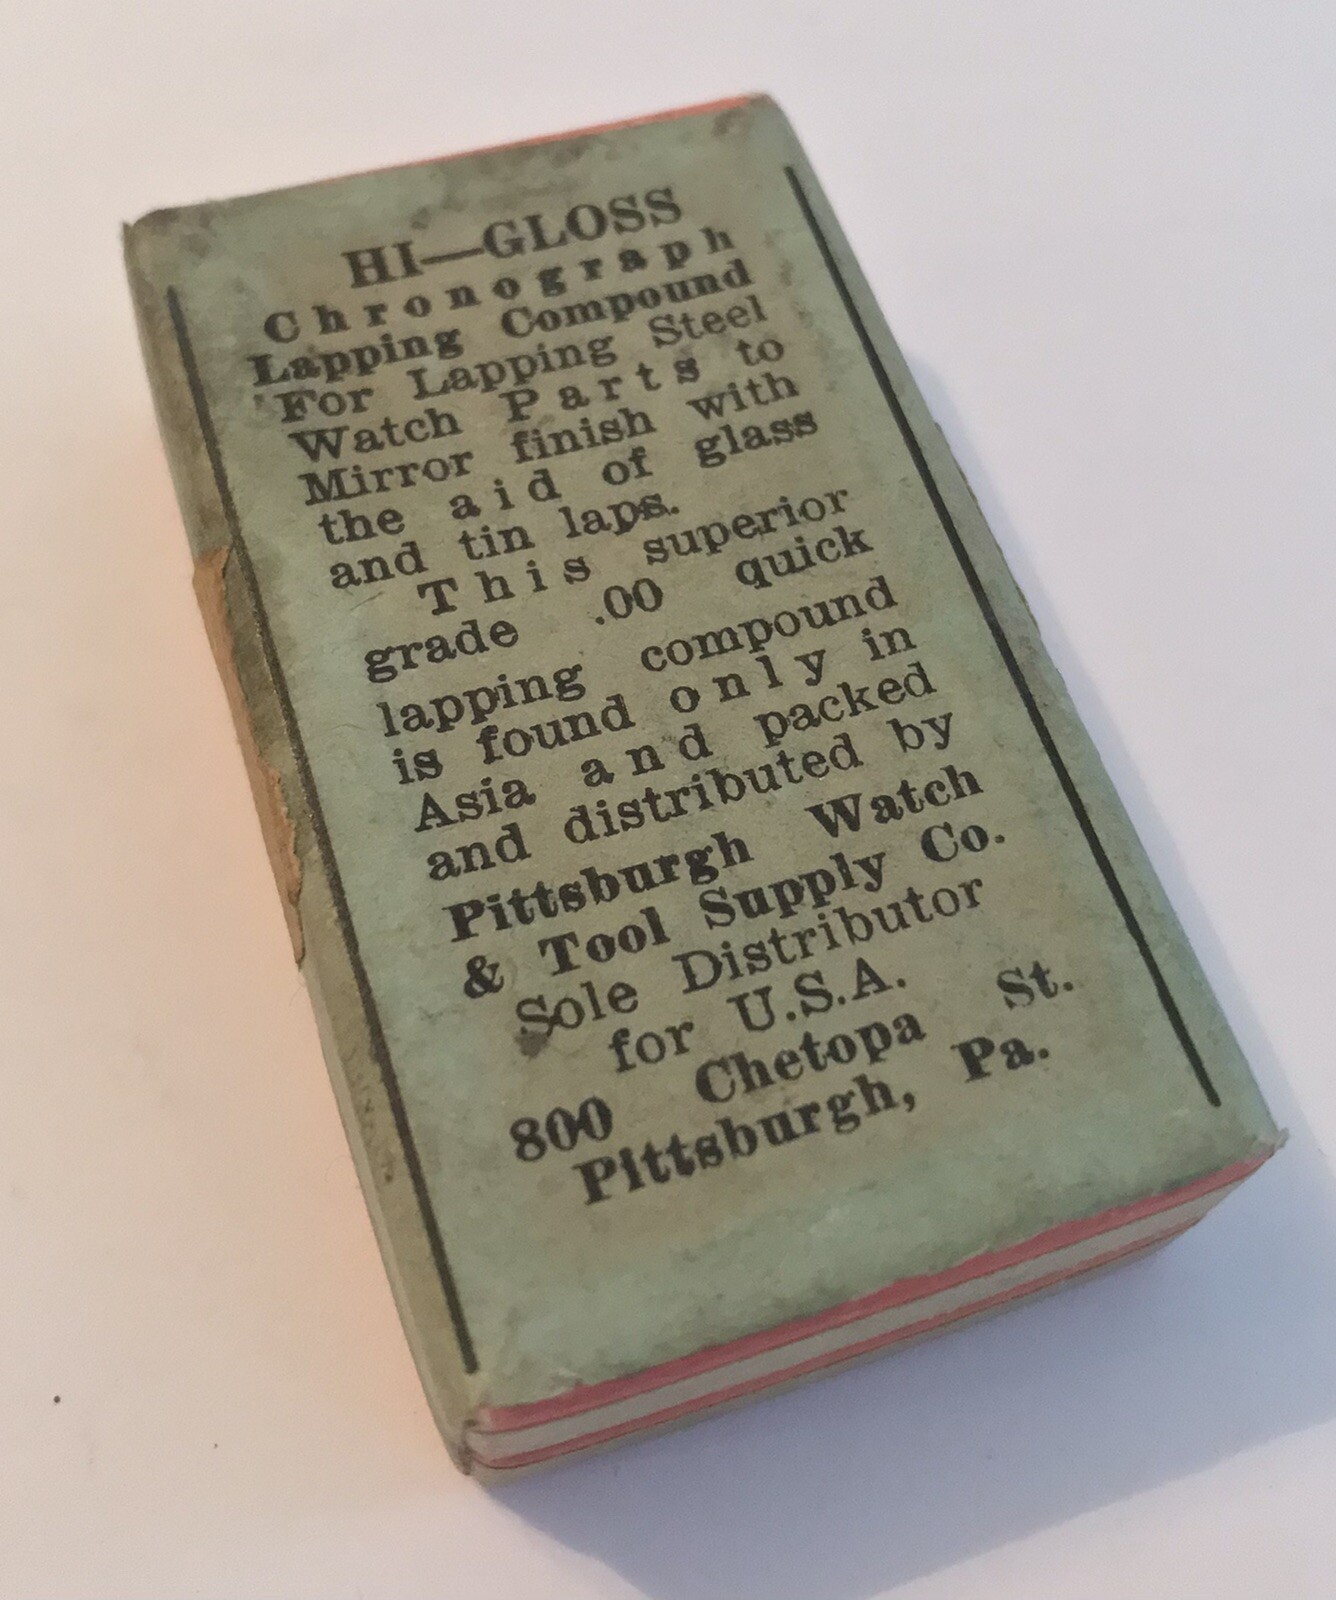 HI—GLOSS
Chronograph
Lapping Compound
For Lapping Steel
Watch Parts to
Mirror finish with
the aid of glass
and tin laps.
This superior
grade .00 quick
lapping compound
is found only in
Asia and packed
and distributed by
Pittsburgh Watch
& Tool Supply Co.
Sole Distributor
for U.S.A.
800 Chetopa St.
Pittsburgh, Pa.